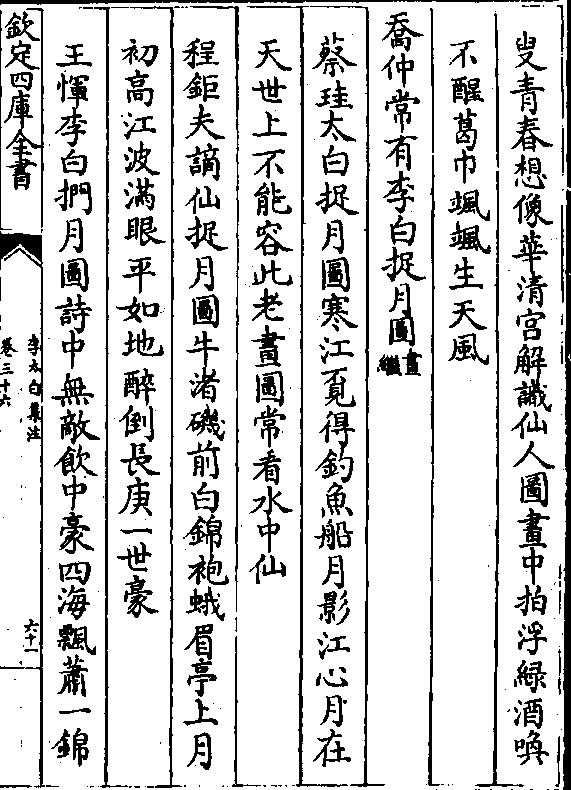 叟青春想像華清宮解識仙人圖畫中拍浮綠酒喚
不醒葛巾颯颯生天風
喬仲常有李白捉月圖畫繼
蔡珪太白捉月圖寒江覓得釣魚船月影江心月在
天世上不能容此老畫圖常看水中仙
程鉅夫謫仙捉月圖牛渚磯前白錦袍蛾眉亭上月
初高江波滿眼平如地醉倒長庚一世豪
王惲李白捫月圖詩中無敵飲中豪四海飄蕭一錦
欽定四庫全書
李太白集注
卷三十六
六十一